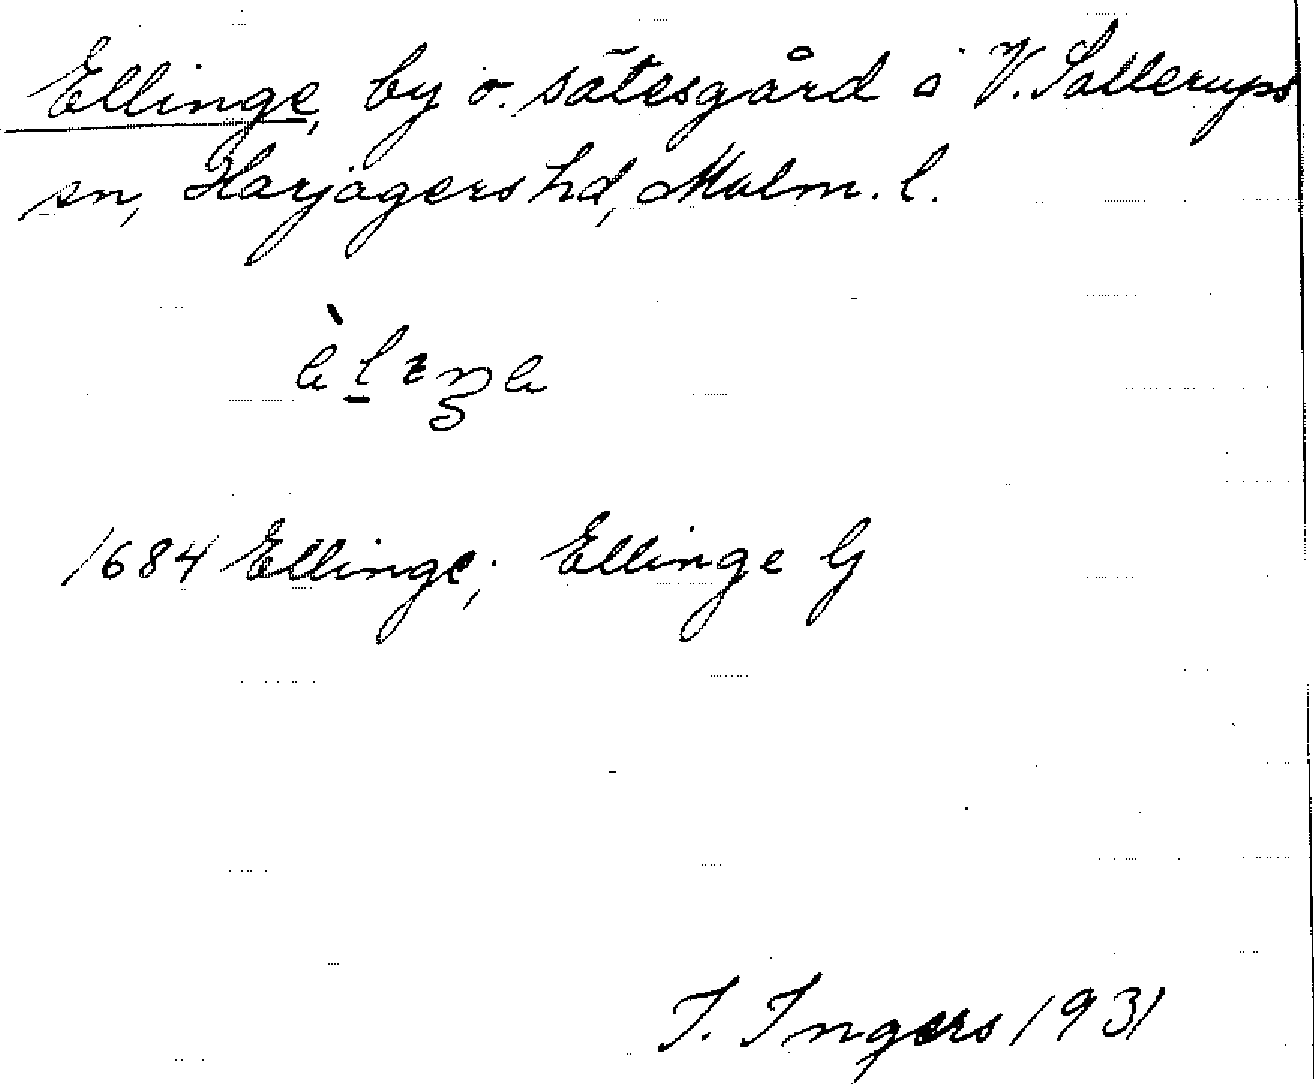 Ellinge, by o. sätesgård i V. Sallerups
sn, Harjagers hd, Malm. l.
1684 Ellinge; Ellinge G
I. Ingers 1931